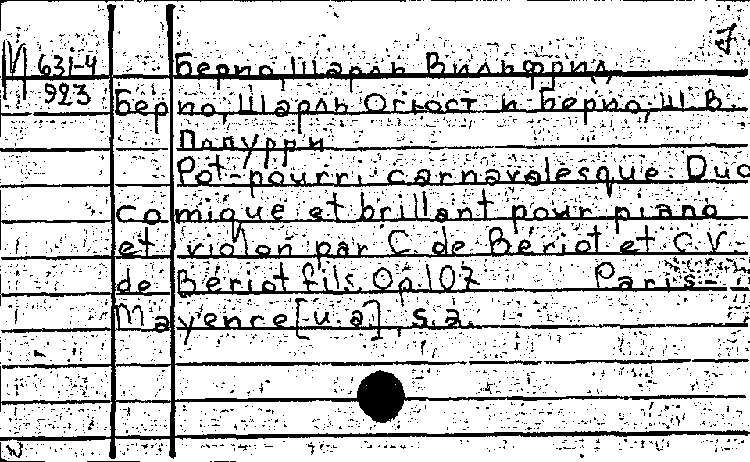 И 631-4 Берио, Шарль Вильфрид
923 Берио, Шарль Огюст и Берио, Ш.В.
Попурри
Pot-pourri carnavalesque. Duo
comique et brillant pour piano
et violon par C. de Bériot et C.V.
de Bériot fils. Op. 107 Paris-
Mayence [u.a.], s.a.